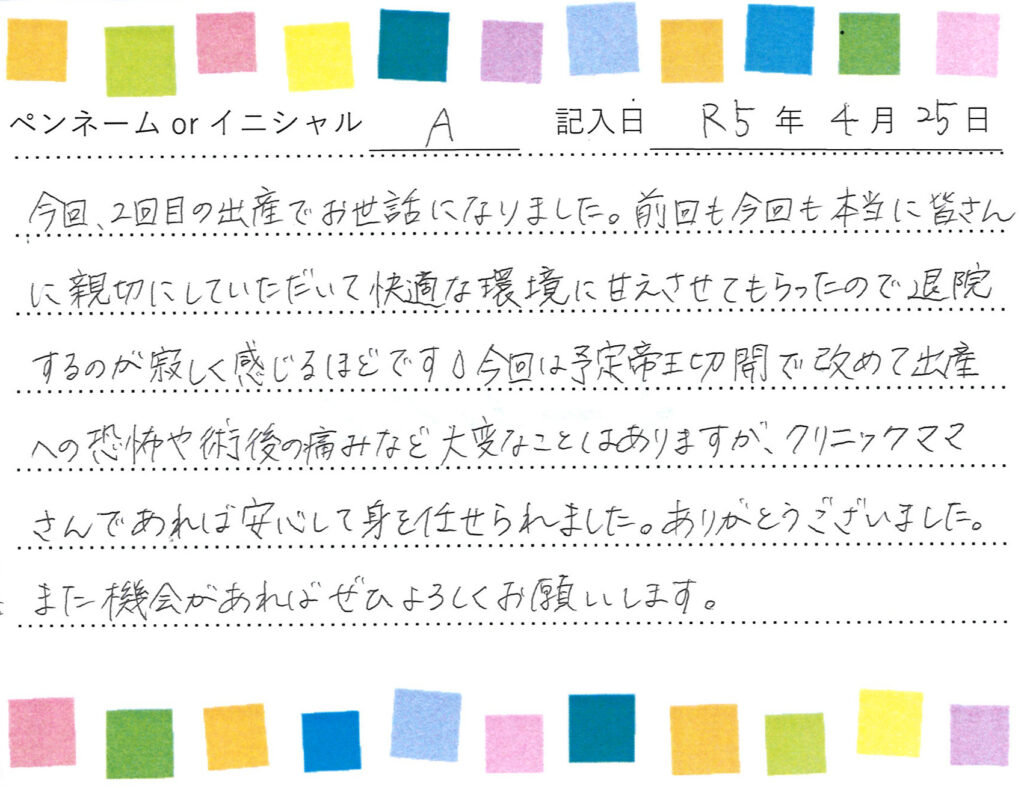 ペンネーム or イニシャル A 記入日 R5 年 4 月 25 日
今回、2回目の出産でお世話になりました。前回も今回も本当に皆さん
に親切にしていただいて快適な環境に甘えさせてもらったので退院
するのが寂しく感じるほどです。今回は予定帝王切開で改めて出産
への恐怖や術後の痛みなど大変なことはありますが、クリニックママ
さんであれば安心して身を任せられました。ありがとうございました。
また機会があればぜひよろしくお願いします。